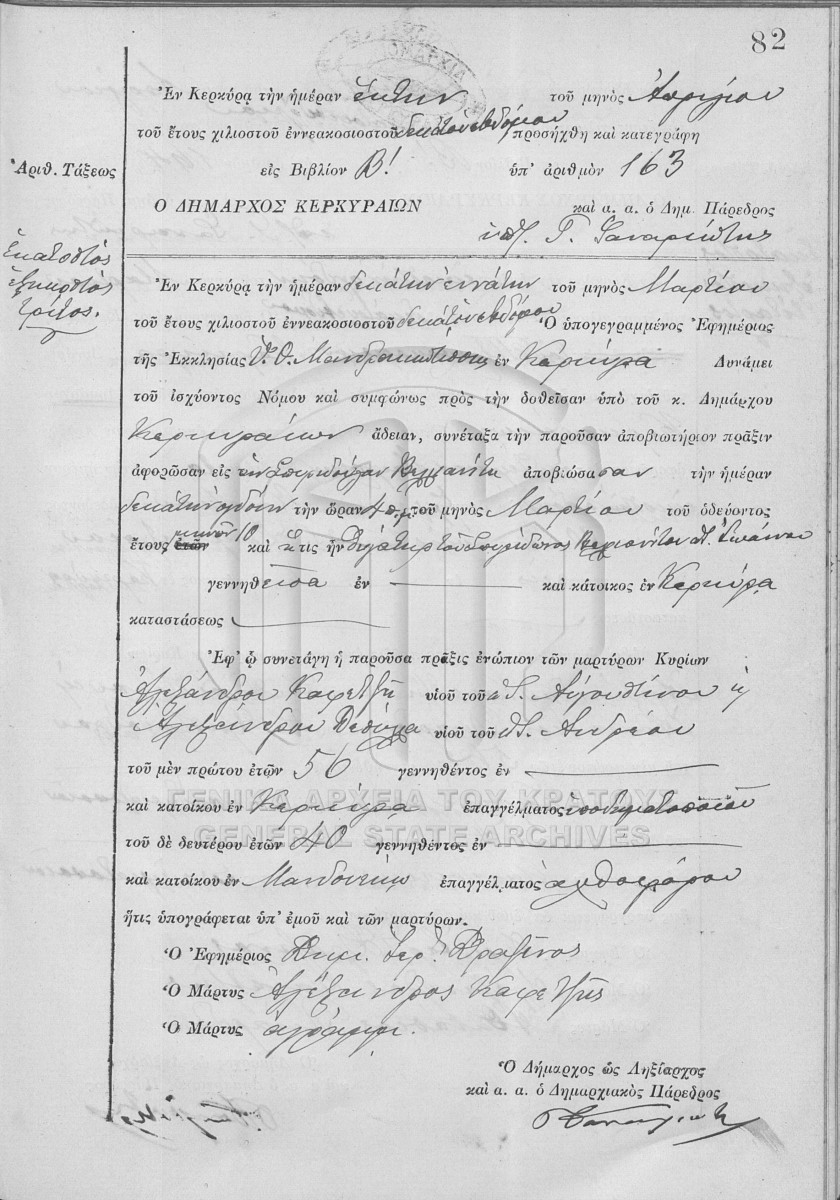 82
Ἐν Κερκύρᾳ τὴν ἡμέραν ἕκτην τοῦ μηνὸς Ἀπριλίου
τοῦ ἔτους χιλιοστοῦ ἐννεακοσιοστοῦ δεκάτου ἑβδόμου προσήχθη καὶ κατεγράφη
Ἀριθ. Τάξεως
εἰς Βιβλίον Β! ὑπ' ἀριθμὸν 163
Ο ΔΗΜΑΡΧΟΣ ΚΕΡΚΥΡΑΙΩΝ καὶ α. α. ὁ Δημ. Πάρεδρος
Γ.
Ἑκατοστὸς
ἑξηκοστὸς
τρίτος.
Ἐν Κερκύρᾳ τὴν ἡμέραν δεκάτην ἐννάτην τοῦ μηνὸς Μαρτίου
τοῦ ἔτους χιλιοστοῦ ἐννεακοσιοστοῦ δεκάτου ἑβδόμου Ὁ ὑπογεγραμμένος Ἐφημέριος
τῆς Ἐκκλησίας Ὑ. Θ. Μανδρακιωτίσσης ἐν Κερκύρᾳ Δυνάμει
τοῦ ἰσχύοντος Νόμου καὶ συμφώνως πρὸς τὴν δοθεῖσαν ὑπὸ τοῦ κ. Δημάρχου
Κερκυραίων ἄδειαν, συνέταξα τὴν παροῦσαν ἀποβιωτήριον πρᾶξιν
ἀφορῶσαν εἰς τὴν Σπυριδούλαν ἀποβιώσασαν τὴν ἡμέραν
δεκάτην ὀγδόην τὴν ὥραν 4 τοῦ μηνὸς Μαρτίου τοῦ ὁδεύοντος
ἔτους ἐτῶν μηνῶν 10 καὶ ἥτις ἦν θυγάτηρ τοῦ Σπυρίδωνος Ἰωάννου
γεννηθεῖσα ἐν καὶ κάτοικος ἐν Κερκύρᾳ
καταστάσεως
Ἐφ' ᾧ συνετάγη ἡ παροῦσα πρᾶξις ἐνώπιον τῶν μαρτύρων Κυρίων
Ἀλεξάνδρου Καφετζῆ υἱοῦ τοῦ Αὐγουστίνου
Ἀλεξάνδρου υἱοῦ τοῦ Ἀνδρέου
τοῦ μὲν πρώτου ἐτῶν 56 γεννηθέντος ἐν
καὶ κατοίκου ἐν Κερκύρᾳ ἐπαγγέλματος ὑποδηματοποιοῦ
ΓΕΝΙΚΑ ΑΡΧΕΙΑ ΤΟΥ ΚΡΑΤΟΥΣ
GENERAL STATE ARCHIVES
τοῦ δὲ δευτέρου ἐτῶν 40 γεννηθέντος ἐν
καὶ κατοίκου ἐν Μανδουκίῳ ἐπαγγέλματος ἀχθοφόρου
ἥτις ὑπογράφεται ὑπ' ἐμοῦ καὶ τῶν μαρτύρων.
Ὁ Ἐφημέριος
Ὁ Μάρτυς Ἀλέξανδρος Καφετζῆς
Ὁ Μάρτυς ἀγράμμ.
Ὁ Δήμαρχος ὡς Ληξίαρχος
καὶ α. α. ὁ Δημαρχιακὸς Πάρεδρος